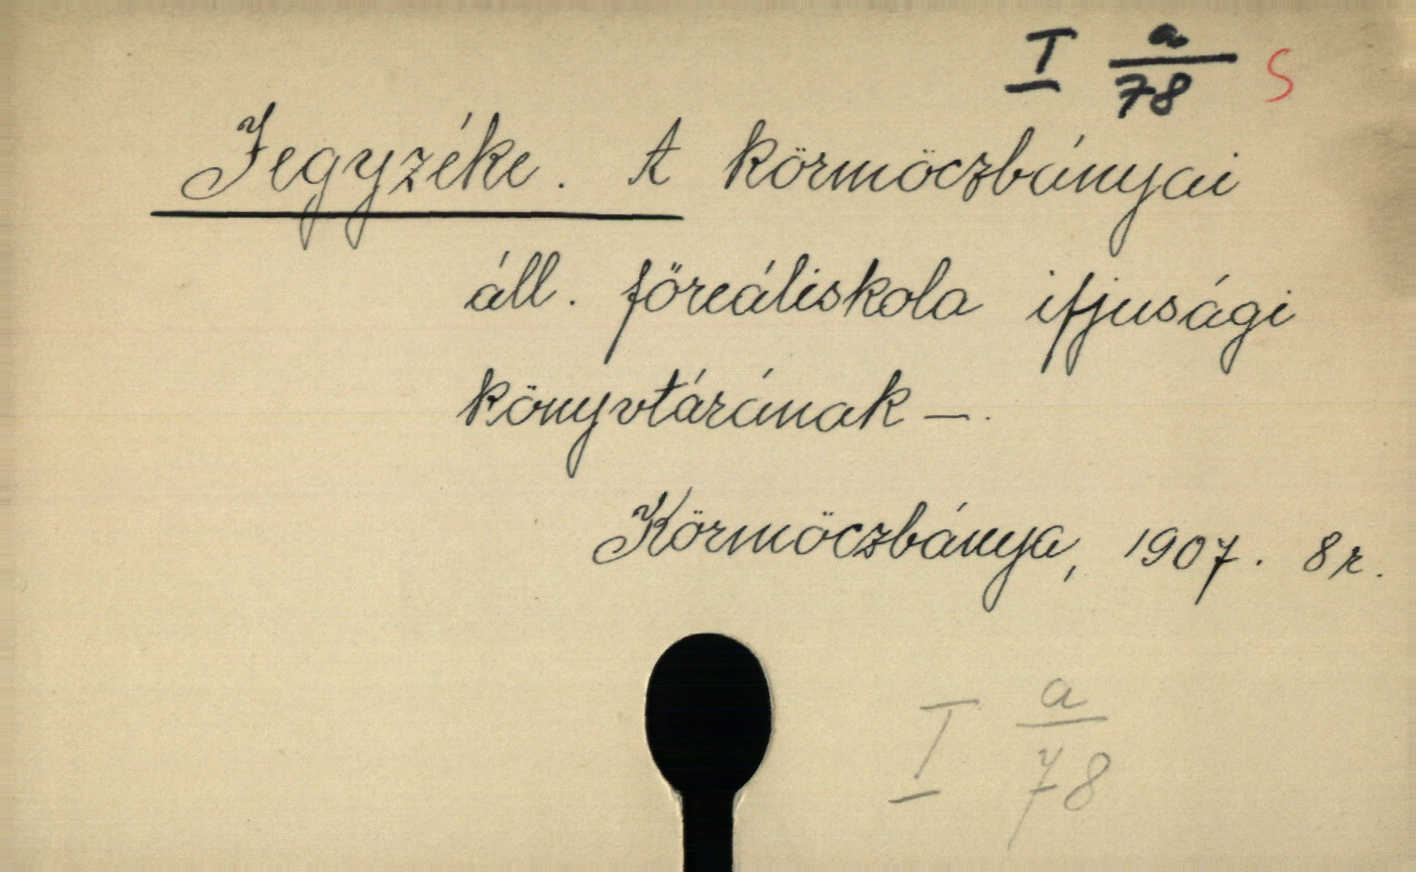 I a/78 S
Jegyzéke. A körmöczbányai
áll. főreáliskola ifjusági
könyvtárának —.
Körmöczbánya, 1907. 8r.
I a/78